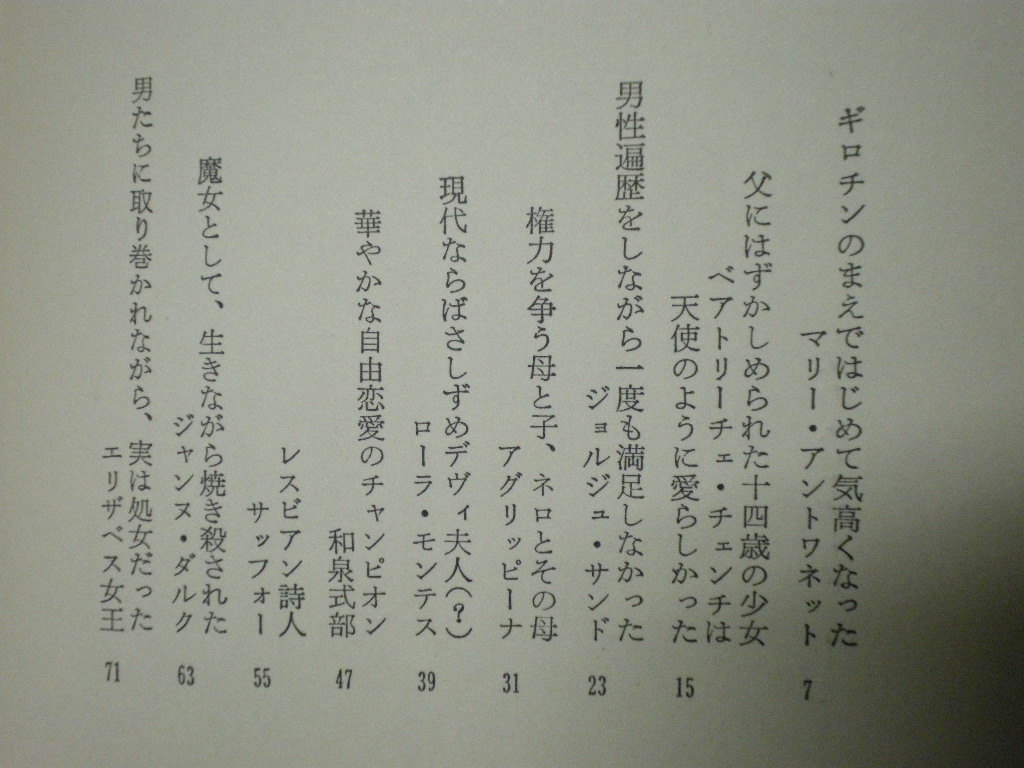 ギロチンのまえではじめて気高くなった
マリー・アントワネット
7
父にはずかしめられた十四歳の少女
ベアトリーチェ・チェンチは
天使のように愛らしかった
15
男性遍歴をしながら一度も満足しなかった
ジョルジュ・サンド
23
権力を争う母と子、ネロとその母
アグリッピーナ
31
現代ならばさしずめデヴィ夫人(?)
ローラ・モンテス
39
華やかな自由恋愛のチャンピオン
和泉式部
47
レスビアン詩人
サッフォー
55
魔女として、生きながら焼き殺された
ジャンヌ・ダルク
63
男たちに取り巻かれながら、実は処女だった
エリザベス女王
71